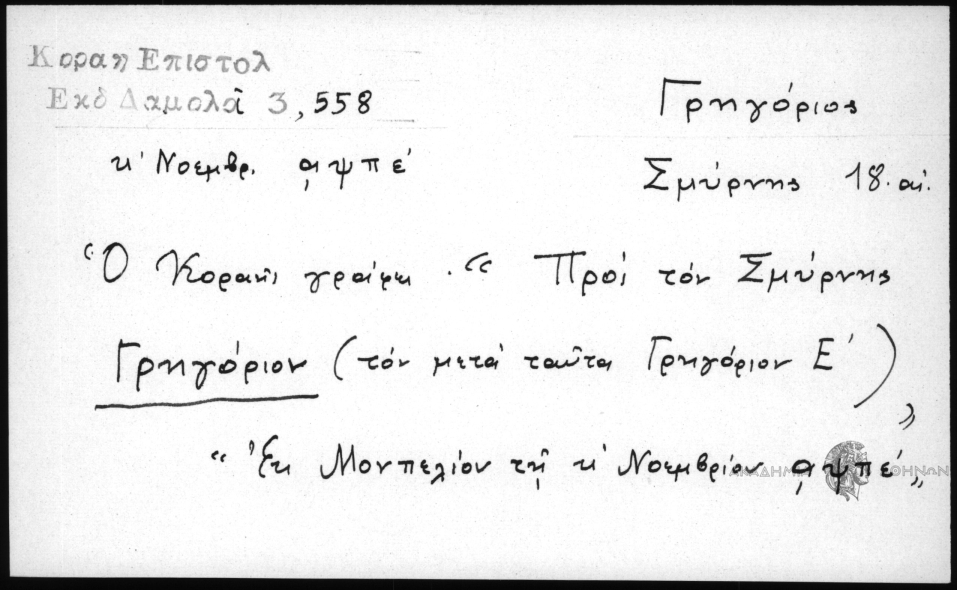 Κοραη Επιστολ
Εκδ Δαμαλᾶ 3, 558
Γρηγόριος
κ' Νοεμβρ. ͵αψπέ
Σμύρνης 18. αἰ.
Ὁ Κοραῆς γράφει · “ Πρὸς τὸν Σμύρνης
Γρηγόριον (τὸν μετὰ ταῦτα Γρηγόριον Ε΄)”
“ Ἐκ Μονπελίου τῇ κ' Νοεμβρίου ͵αψπέ „
ΑΚΑΔΗΜΙΑ ΑΘΗΝΩΝ